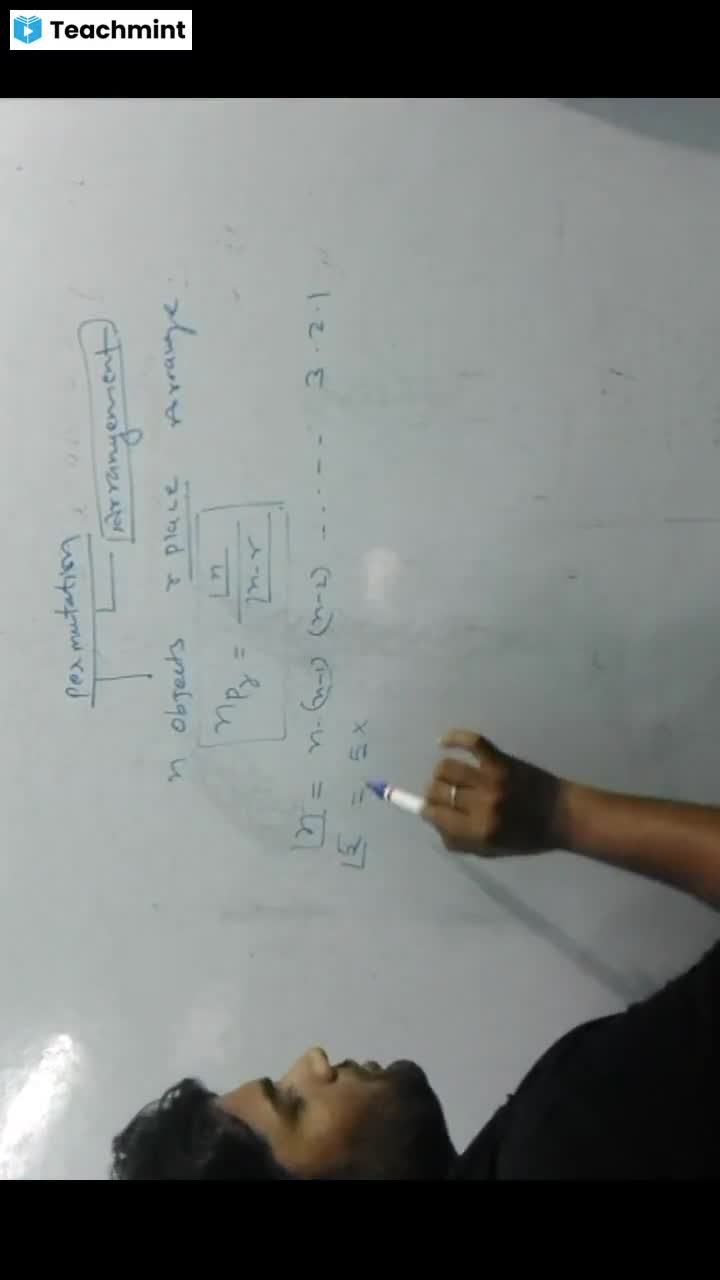 Teachmint
Permutation
Arrangement
n objects r place Arrange.
nPr = ⌊n / ⌊n-r
⌊n = n.(n-1) (n-2) ------ 3.2.1
⌊5 = 5×